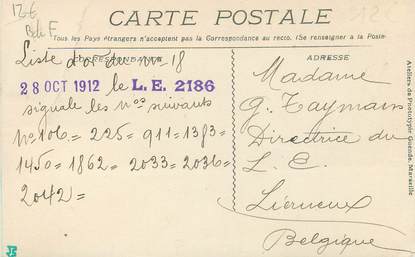 CARTE POSTALE
Tous les Pays étrangers n'acceptent pas la Correspondance au recto. (Se renseigner à la Poste
CORRESPONDANCE
ADRESSE
Liste d'or du n° 18
28 OCT 1912 le L. E. 2186
signale les nos suivants
Nos 106 = 225 = 911 = 1383 =
1450 = 1862 = 2033 = 2036 =
2042 =
Madame
G. Taymans
Directrice du
L. E.
Lierneux
Belgique
Ateliers de Phototypie Guende, Marseille